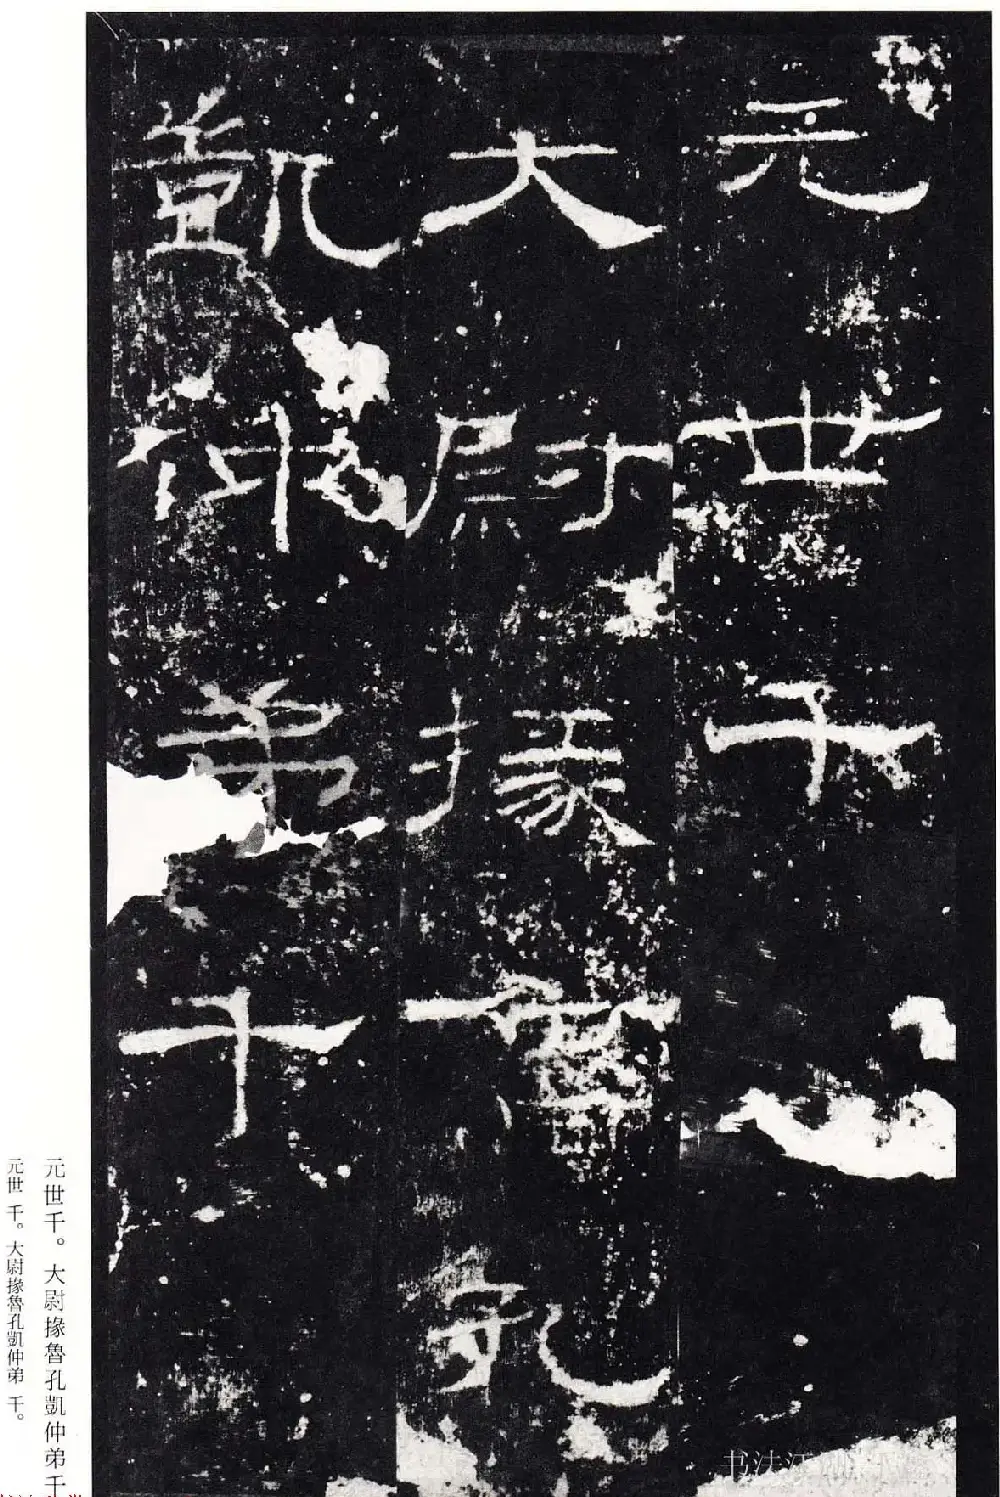 元世千
大尉掾魯孔
凱仲弟千
元世千。大尉掾魯孔凱仲弟千
元世 千。大尉掾魯孔凱仲弟 千。
书法